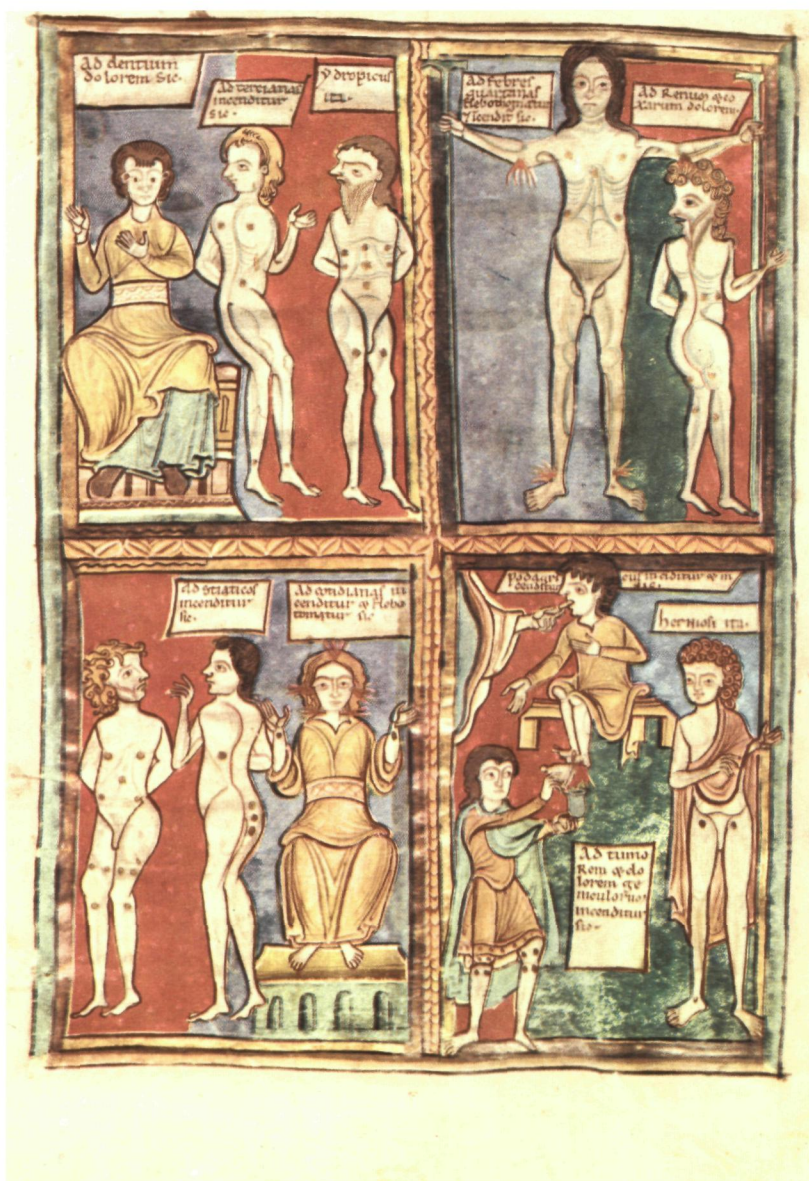 Ad dentium
dolorem sic·
Ad tercianas
incenditur
sic·
ydropicus
Ad febres
quartanas
flebothomatur
incendit sic·
Ad Renum
dolorem·
Ad sciaticos
incenditur
sic·
Ad cotidianas in
cenditur flebo
tomatur sic
podagri
herniosi ita·
Ad tumo
Rem do
lorem ge
niculorum
incenditur
sic·